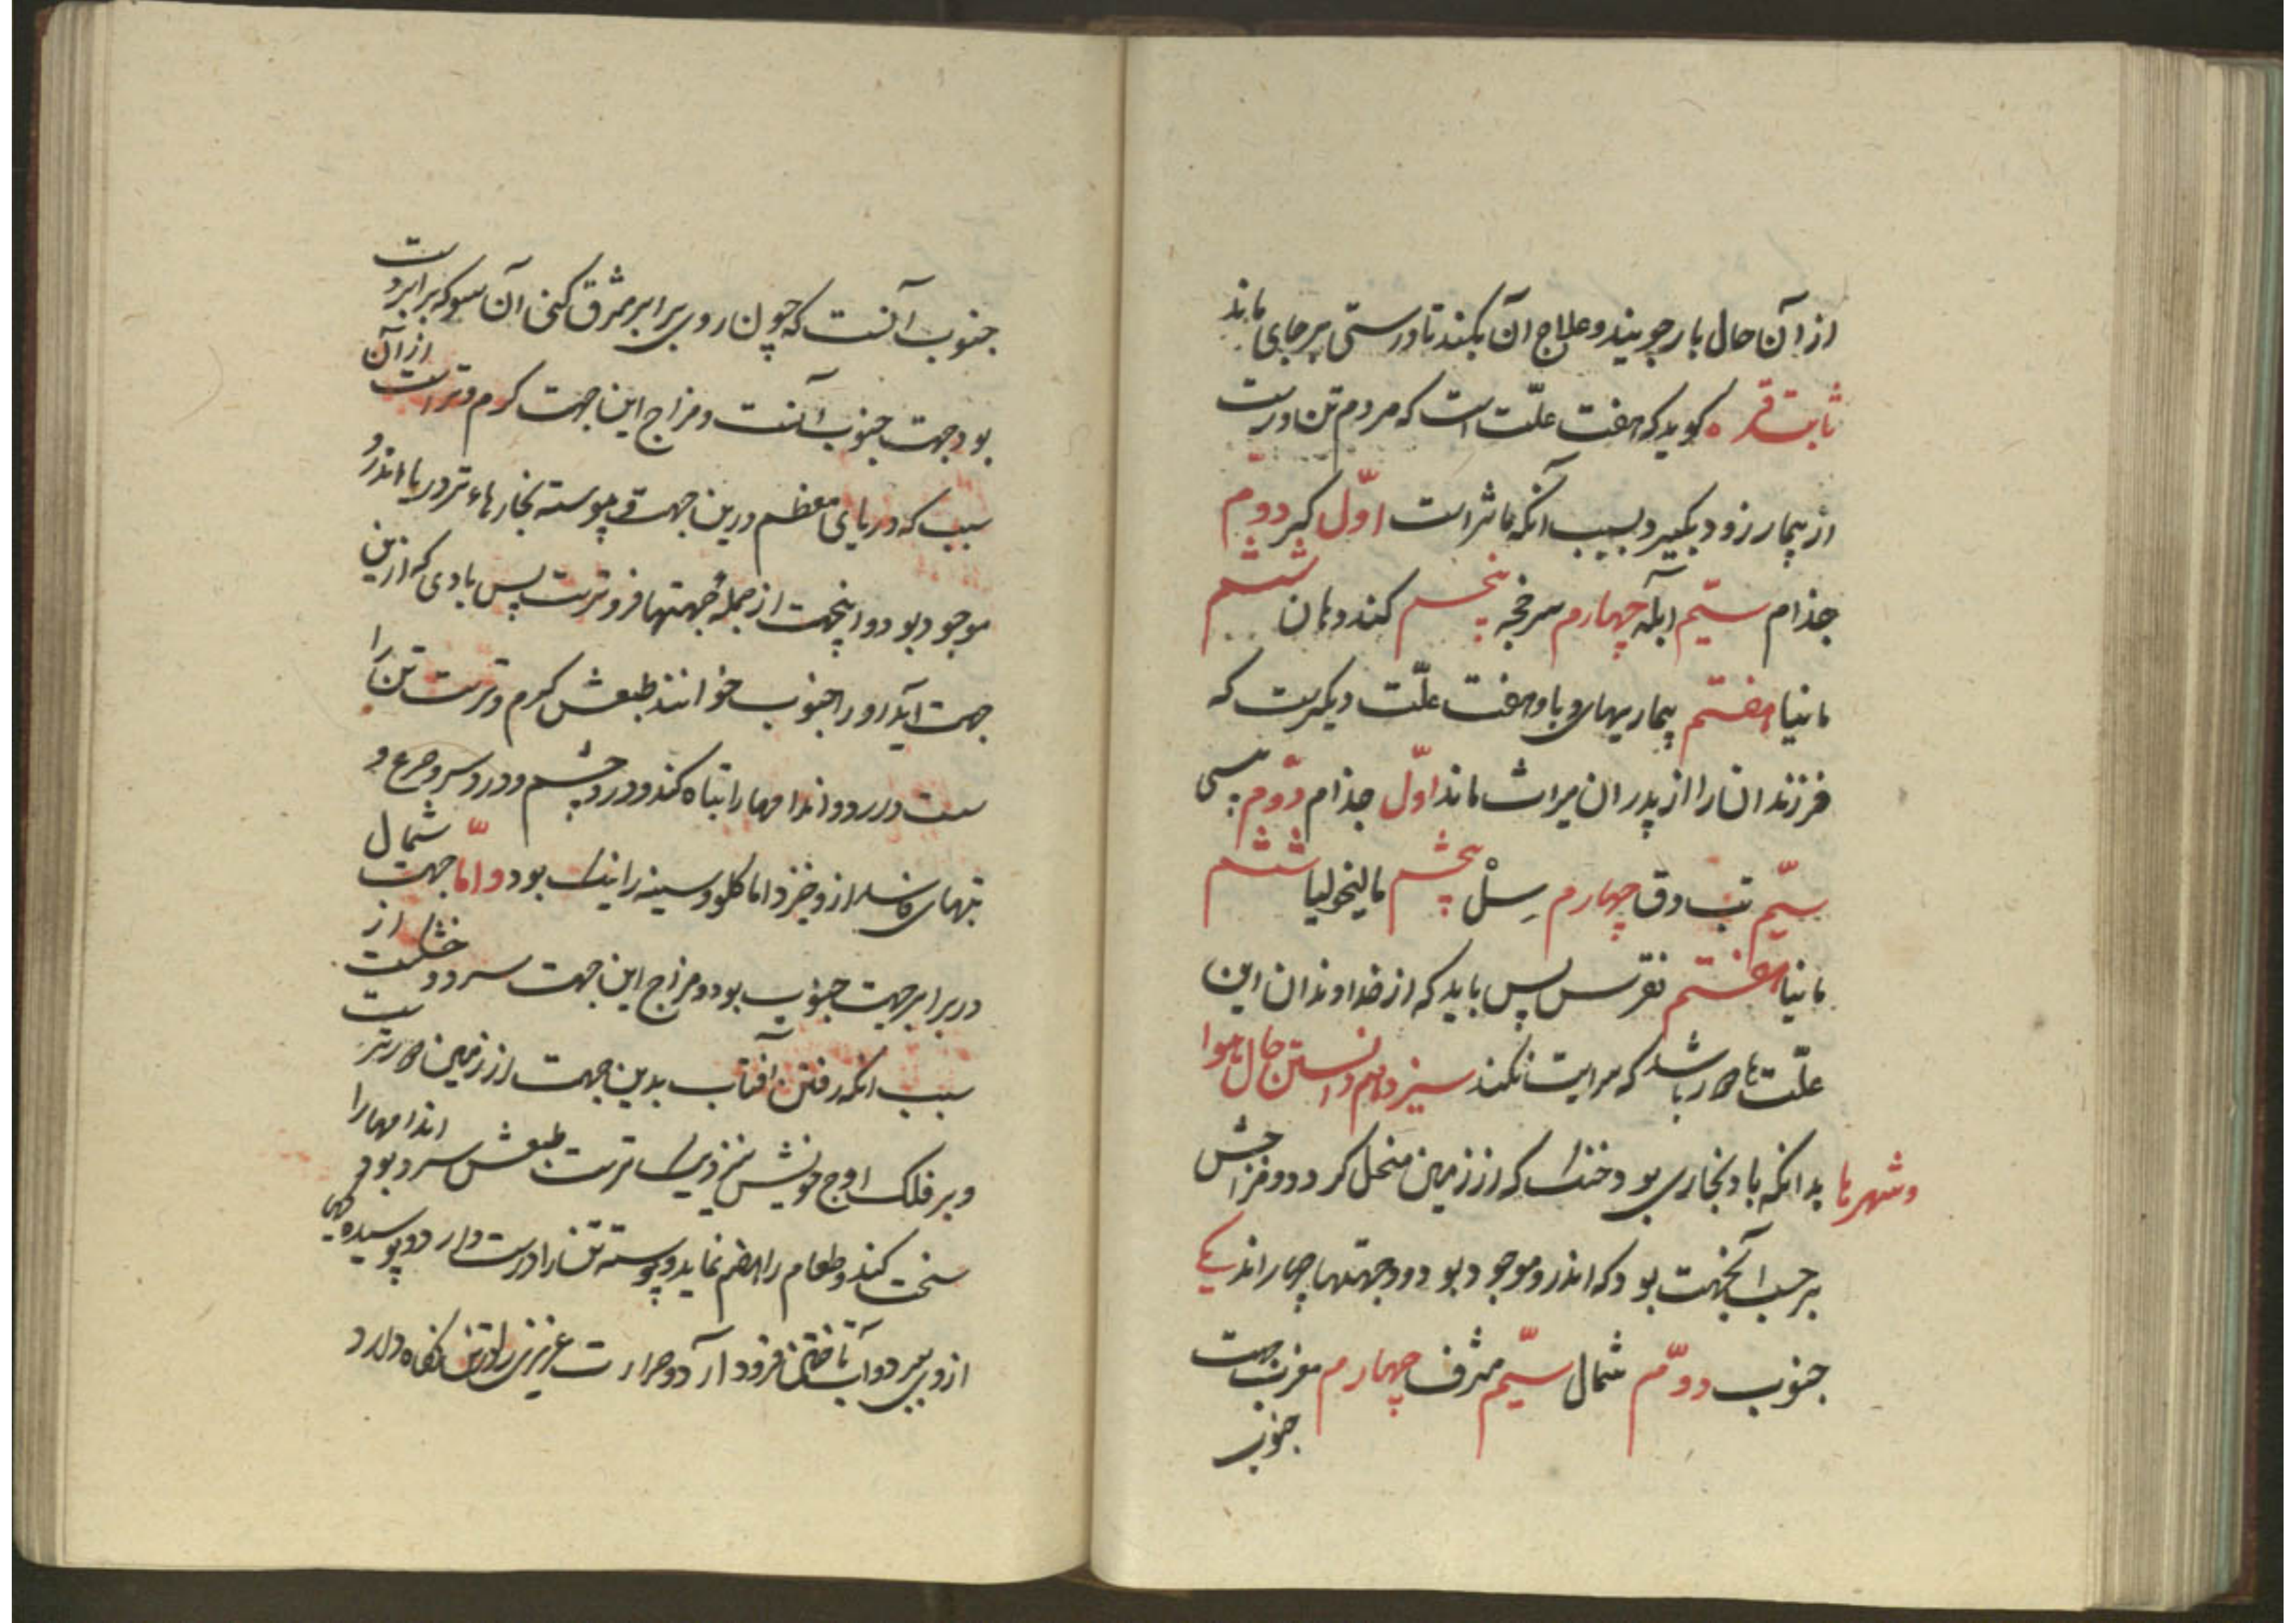 از آن حال باز جویند و علاج آن بکنند تا درستی بر جای ماند
ثابت قره گوید که هفت علّت است که مردم تن درست
از بیمار زود بگیرد بسبب آنکه مأثر است اوّل گر دوّم
جذام سیّم آبله چهارم سرخجه پنجم گند دهان ششم
مانیا هفتم بیماریهای وبا و هفت علّت دیگرست که
فرزندان را از پدران میراث ماند اوّل جذام دوّم پیسی
سیّم تب دق چهارم سِلْ پنجم مالیخولیا ششم
مانیا هفتم نقرس پس باید که از خداوندان این
علّت‌ها دور باشد که سرایت نکند سیزدهم دانستن حال هوا
و شهرها بدانکه باد بخاری بود خشک که از زمین منحل گردد و مزاجش
بر حسب آنجهت بود که اندرو موجود بود و جهتها چهاراند یکی
جنوب دوّم شمال سیّم مشرق چهارم مغرب جهت
جنوب
جنوب آنست که چون روی برابر مشرق کنی آن سو که برابر دست
بود جهت جنوب آنست و مزاج این جهت گرم و تر است از آن
سبب که دریای معظم درین جهت پیوسته بخارهاء تر دریا اندرو
موجود بود و اینجهت از جملهٔ جهتها فروترست پس بادی که ازین
جهت آید او را جنوب خوانند طبعش گرم و ترست تن را
سست دارد و اندامها را تباه کند و درد چشم و درد سر و صرع و
تبهای از و خیزد اما گلو و سینه را نیک بود و امّا جهت شمال
در برابر جهت جنوب بود و مزاج این جهت سرد و خشکست از
سبب آنکه رفتن آفتاب بدین جهت از زمین دورترست
و بر فلک اوج خویش نزدیک ترست طبعش سرد بود اندامها را
سخت کند و طعام را هضم نماید و پیوسته تن را درست دارد و پوسیده
از وی ببرد و آب تاختن فرود آرد و حرارت عزیزی را در تن نگاه دارد